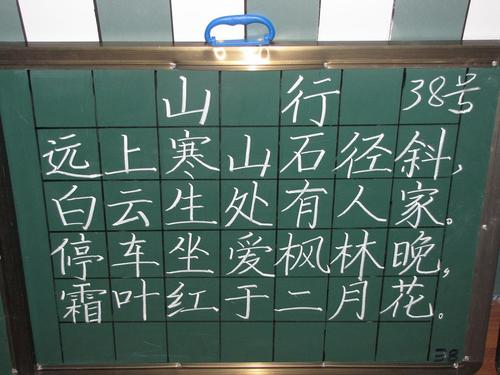 山行 38号
远上寒山石径斜，
白云生处有人家。
停车坐爱枫林晚，
霜叶红于二月花。
38